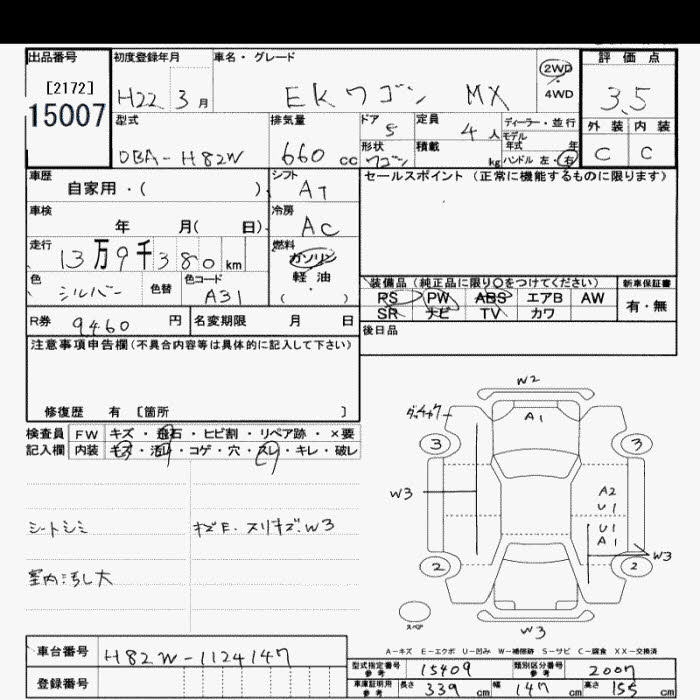 出品番号 初度登録年月 車名・グレード 2WD 評価点
[2172] H22 3月 EKワゴン MX 4WD 3.5
15007 型式 排気量 ドア 5 定員 4人 ディーラー・並行 外装 内装
モデル年式 年
DBA-H82W 660cc 形状 ワゴン 積載 kg ハンドル 左・右 C C
車歴 シフト セールスポイント (正常に機能するものに限ります)
自家用・( ) AT
車検 冷房
年 月( 日) AC
走行 燃料
13万9千380km ガソリン
装備品 (純正品に限り○をつけてください) 新車保証書
色 色替 色コード 軽・油
シルバー A31 ( )
PS PW ABS エアB AW 有・無
SR ナビ TV カワ
R券 9460円 名変期限 月 日 後日品
注意事項申告欄(不具合内容等は具体的に記入して下さい)
修復歴 有 [箇所 ]
検査員 FW キズ・飛石・ヒビ割・リペア跡・×要
記入欄 内装 キズ・汚レ・コゲ・穴・スレ・キレ・破レ
シートシミ キズE. スリキズ. W3
室内汚し大
W2
A1
3 3
W3 A2
U1
U1
A1
W3
2 2
スペア
W3
A-キズ E-エクボ U-凹み W-補修跡 S-サビ C-腐食 XX-交換済
車台番号 H82W-1124147
型式指定番号 参考 15409 類別区分番号 参考 2007
登録番号
車庫証明用 参考 長さ 339cm 幅 147cm 高さ 155cm